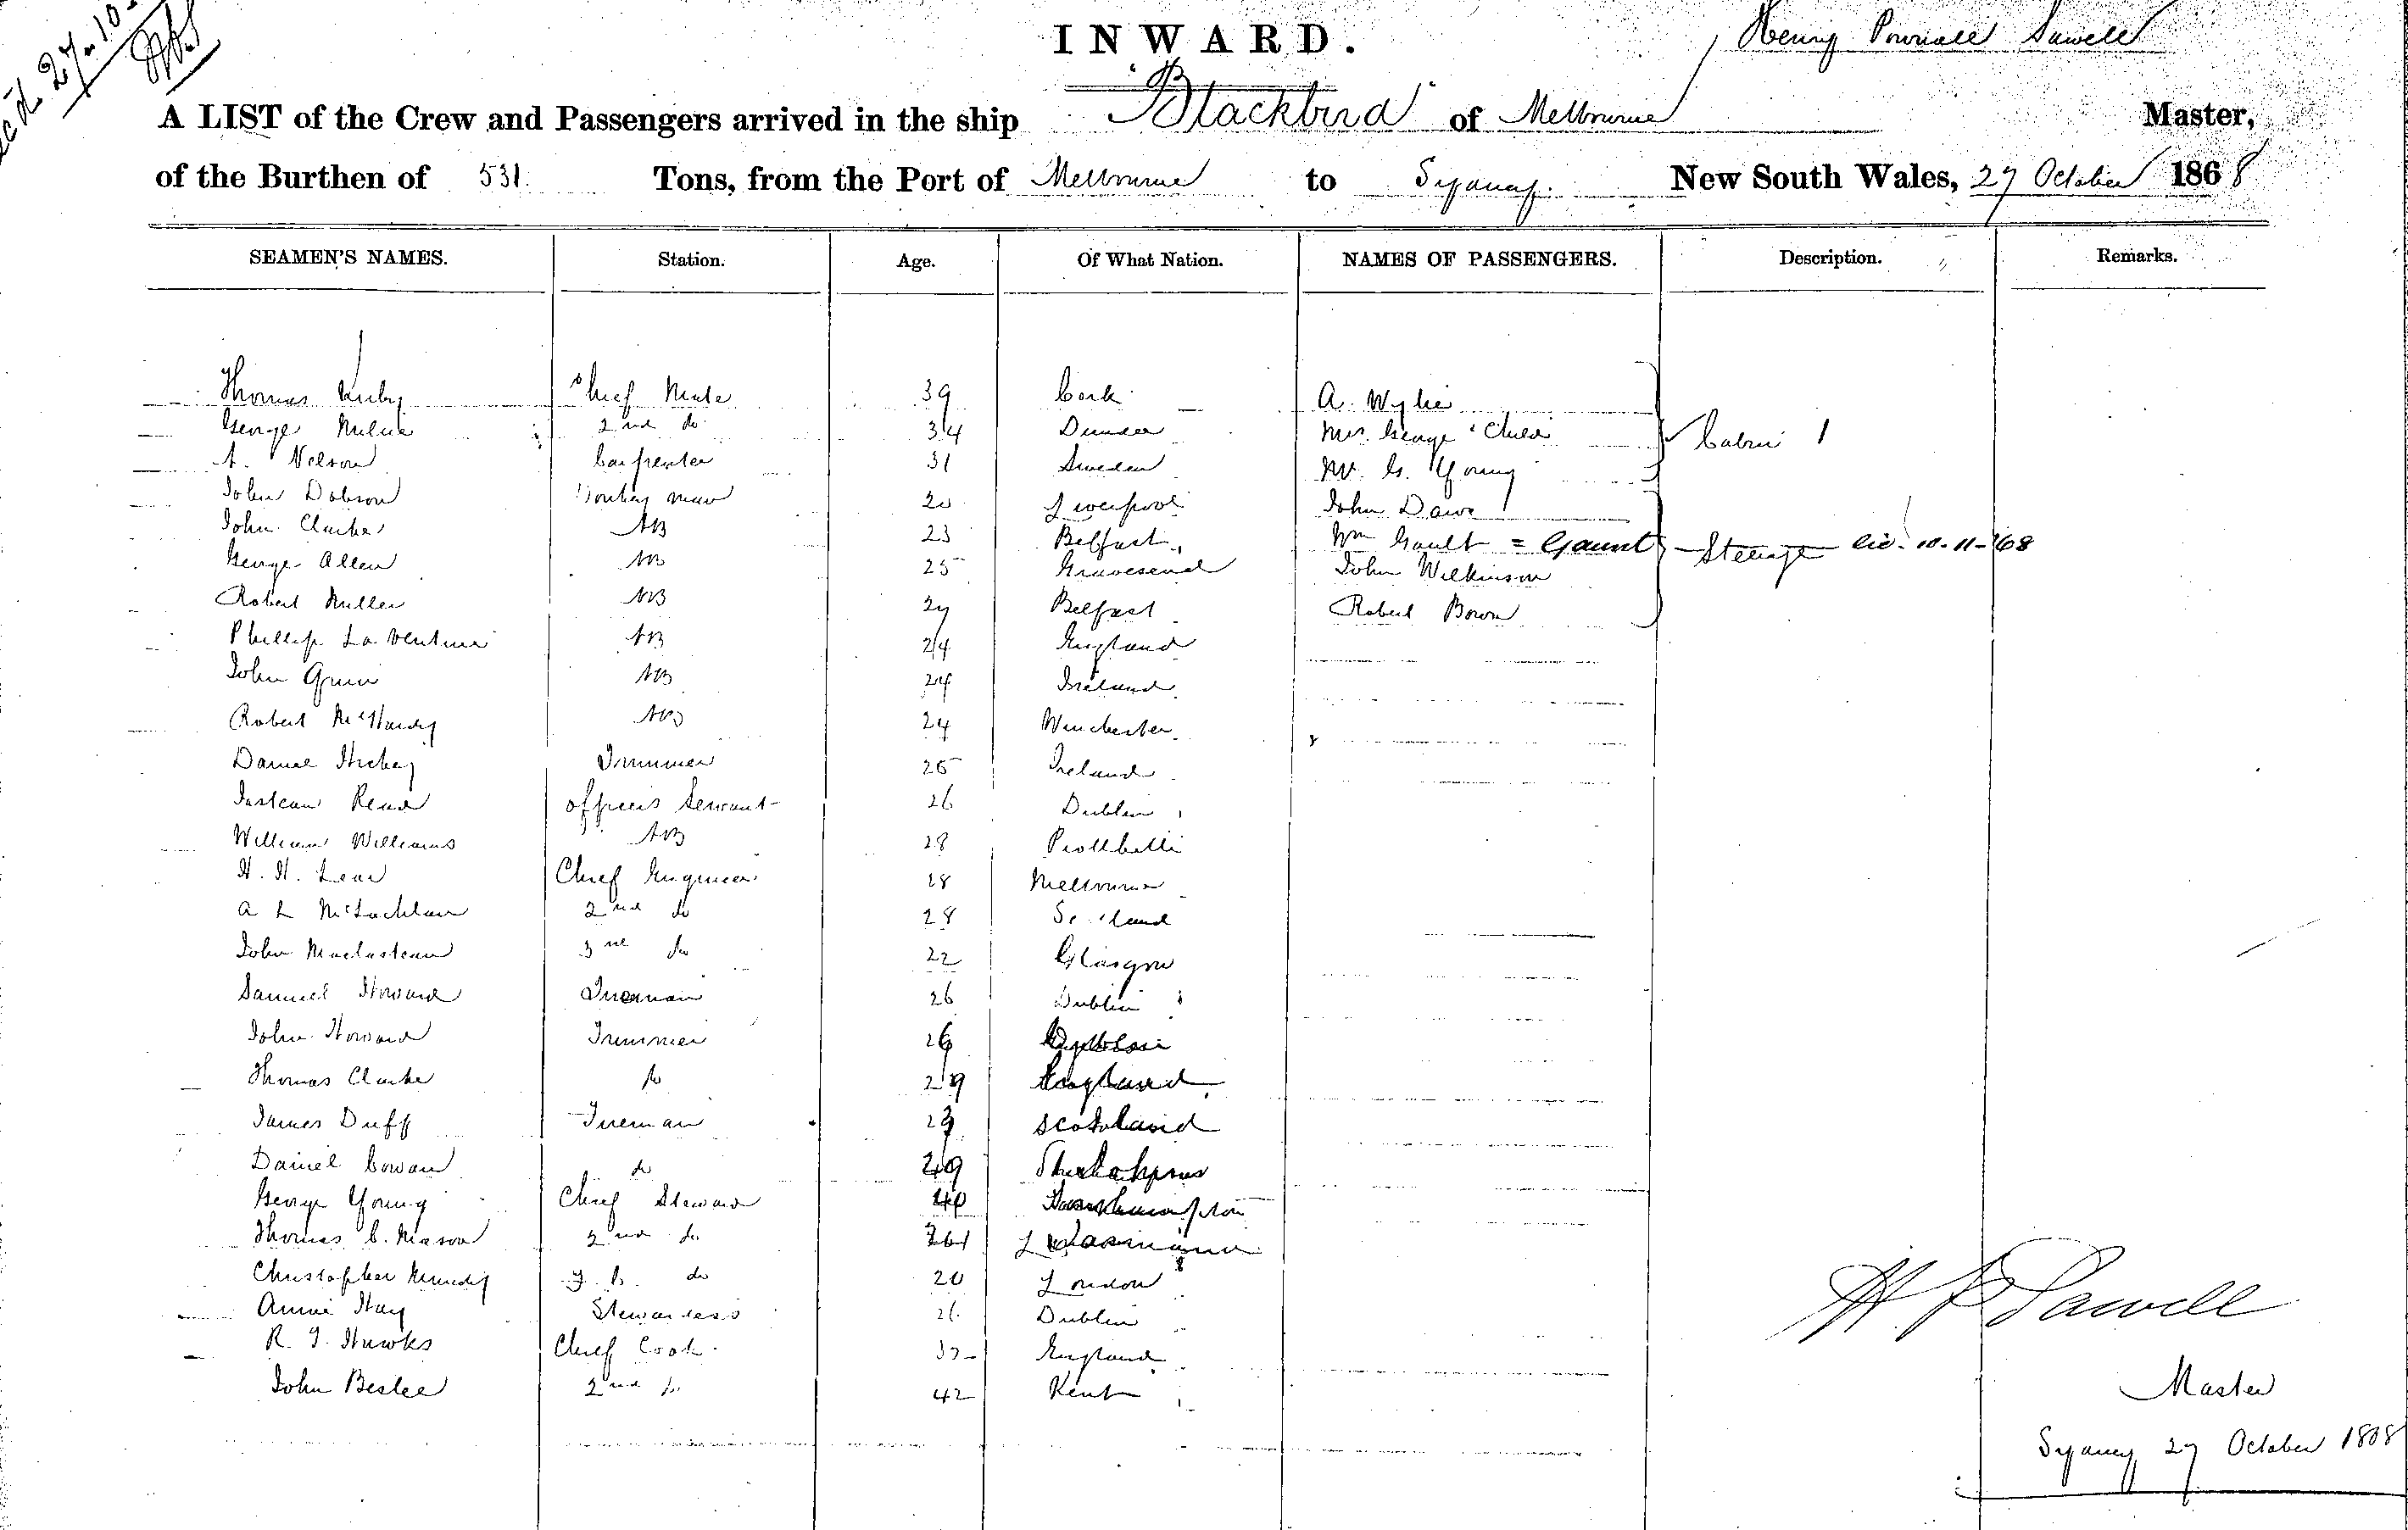 recd. 27.10.
INWARD.
Henry Pownall Sawell
A LIST of the Crew and Passengers arrived in the ship "Blackbird" of Melbourne Master,
of the Burthen of 531 Tons, from the Port of Melbourne to Sydney. New South Wales, 27 October 1868
SEAMEN'S NAMES. Station. Age. Of What Nation. NAMES OF PASSENGERS. Description. Remarks.
Thomas Chief Mate 39 Cork A. Wylie
George Milne 2nd do 34 Dundee Mrs. George & Child Cabin
A. Nelson Carpenter 31 Sweden Mr. G. Young
John Dobson Donkey man 20 Liverpool John Dawe
John Clarke AB 23 Belfast Wm Gault = Gaunt Steerage 10-11-'68
George Allen AB 25 Gravesend John Wilkinson
Robert Miller AB 27 Belfast Robert Bown
Phillip La Venture AB 24 England
John Green AB 24 Ireland
Robert McHardy AB 24 Winchester
Daniel Hickey Trimmer 25 Ireland
Read officers Servant 26 Dublin
William Williams AB 28
H. H. Lear Chief Engineer 28 Melbourne
A L McLachlan 2nd do 28 Scotland
John 3rd do 22 Glasgow
Samuel Howard Fireman 26 Dublin
John Howard Trimmer 26
Thomas Clarke do 29 England
James Duff Fireman 23 Scotland
Daniel Cowan do
George Young Chief Steward 40
Thomas C. Mason 2nd do
Christopher F. C. do 20 London
Annie Hay Stewardess 26 Dublin
R. J. Hawks Chief Cook 32 England
John Beslee 2nd do 42 Kent
H P Sawell
Master
Sydney 27 October 1868